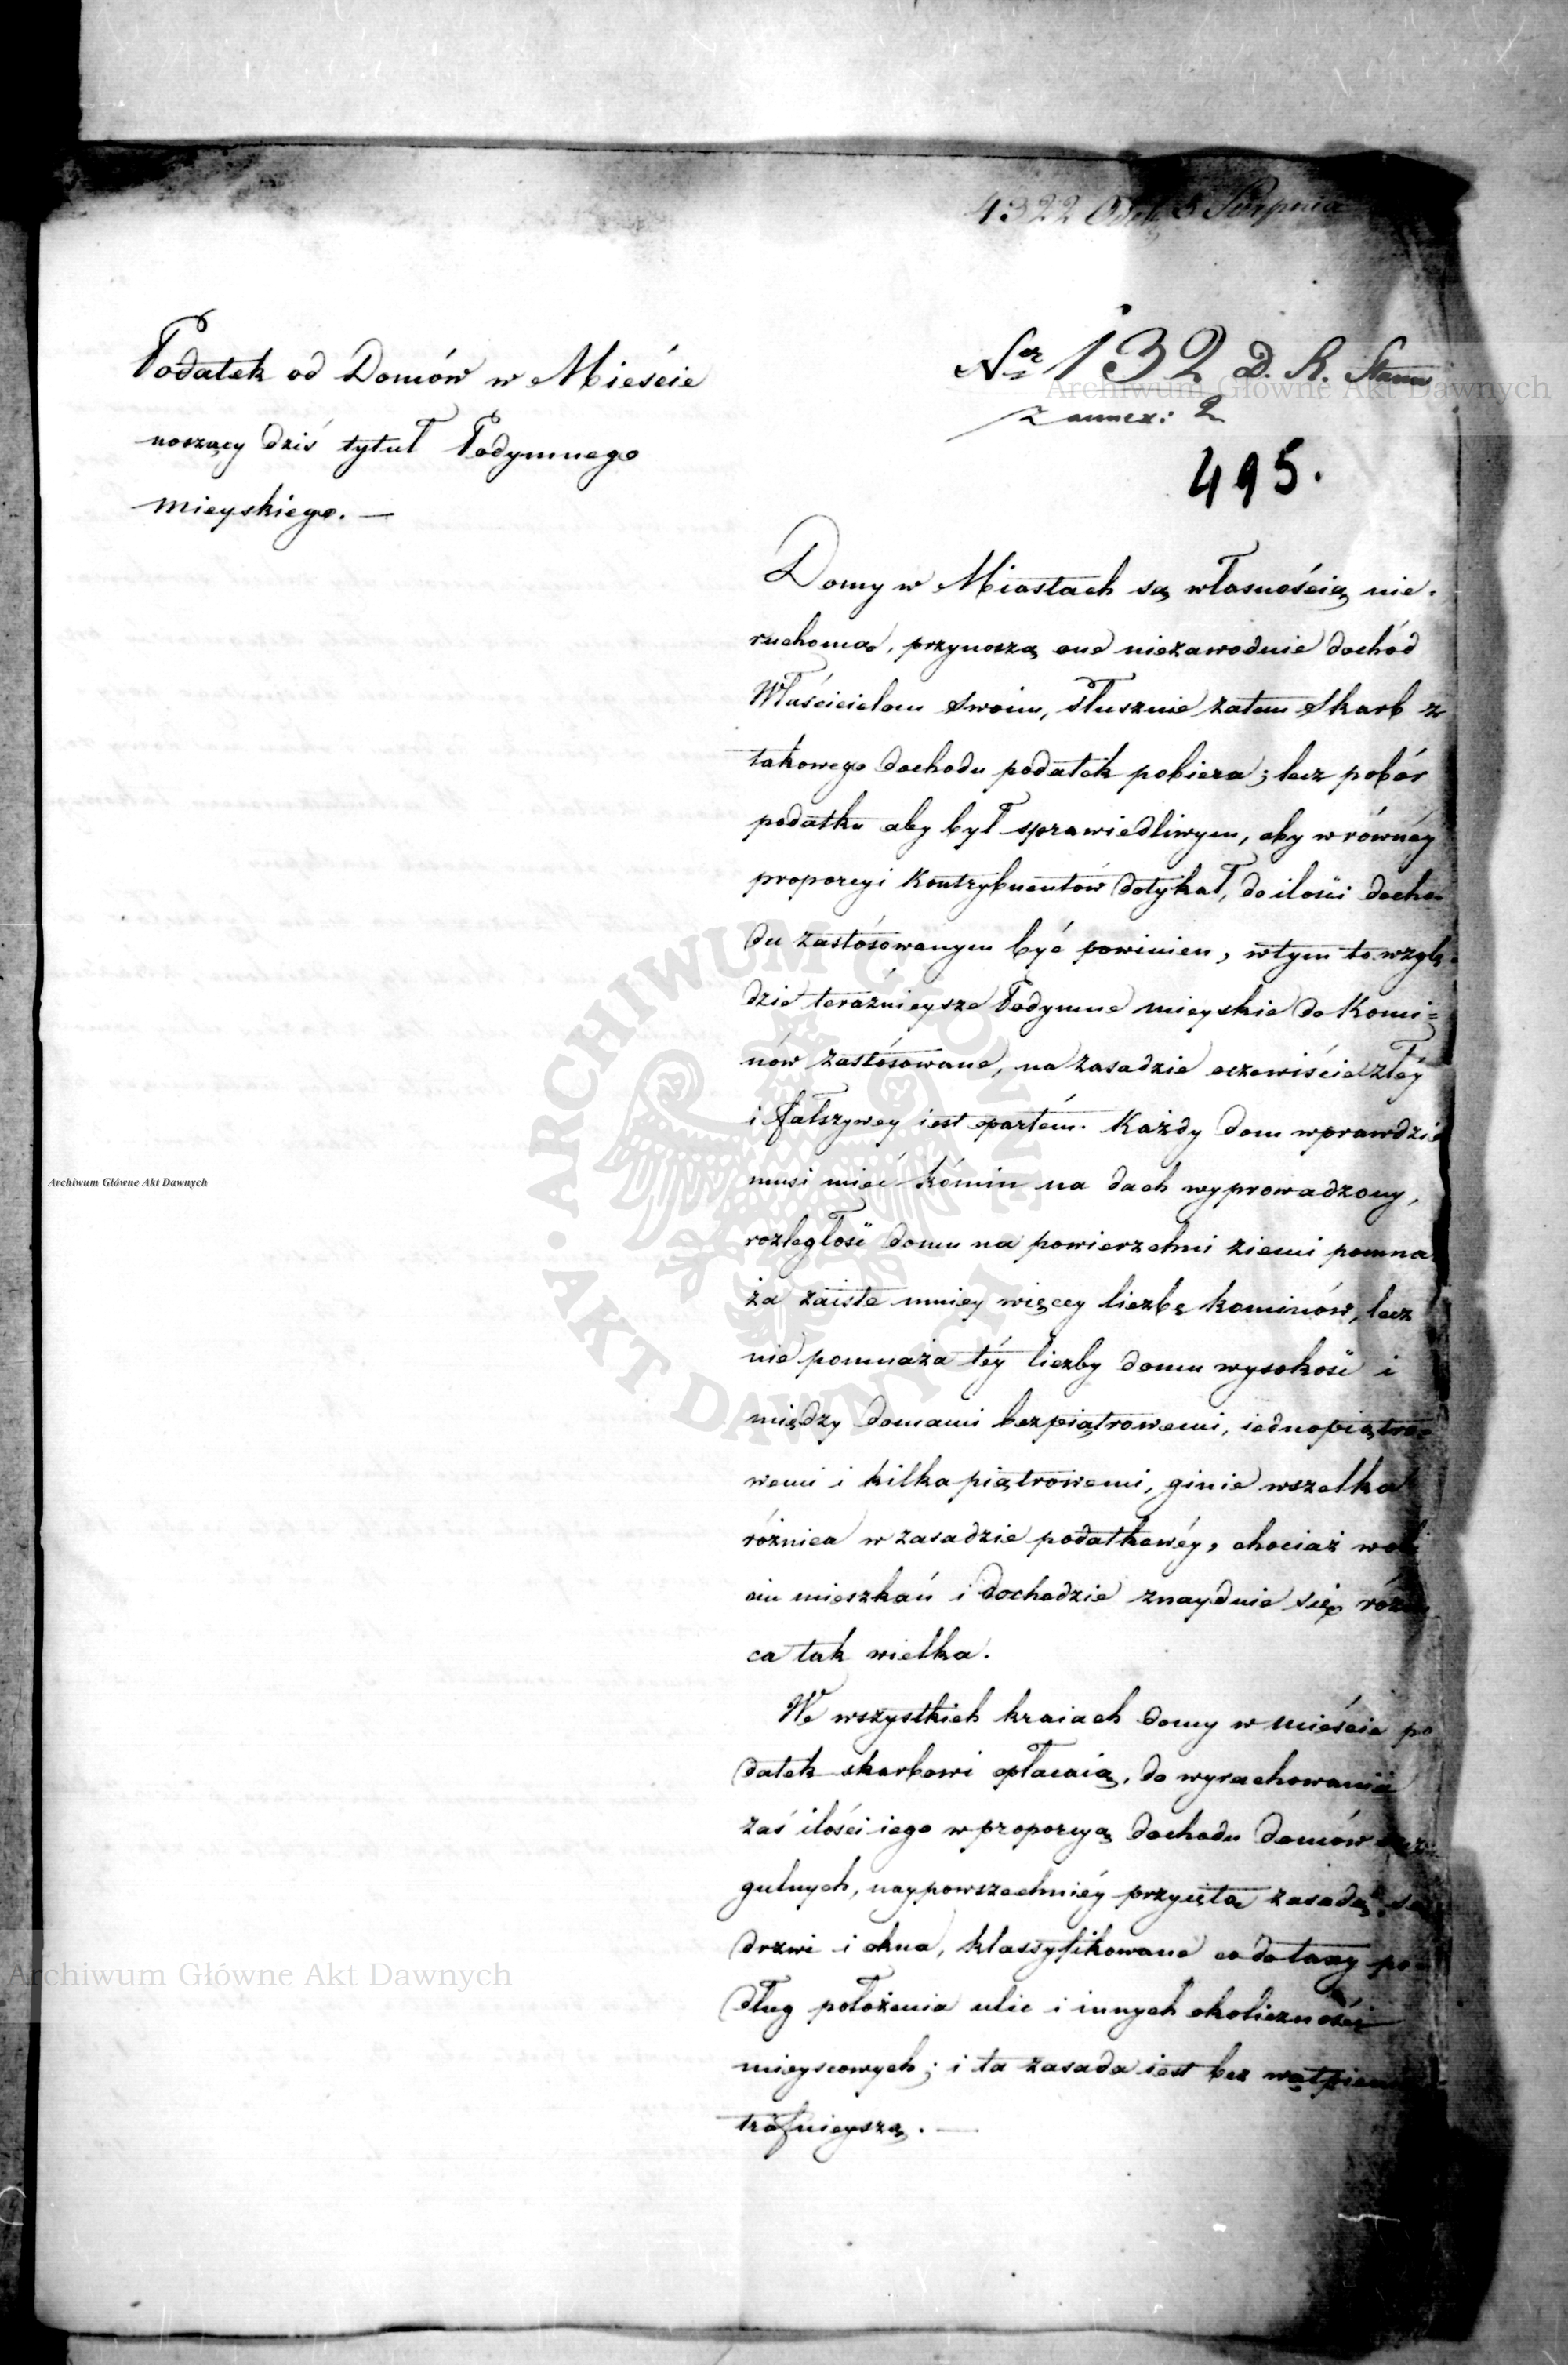 4322 5 Sierpnia
Podatek od Domów w Mieście
noszący dziś tytuł Podymnego
mieyskiego. —
Nr 132 D. R. Stanu
z annex: 2
495.
Domy w Miastach są własnością nie-
ruchomą, przynoszą one niezawodnie dochód
Właścicielom swoim, słusznie zatem Skarb z
takowego dochodu podatek pobiera; lecz pobór
podatku aby był sprawiedliwym, aby w równéy
proporcyi kontrybuentów dotykał, do ilości docho-
du zastósowanym być powinien, w tym to wzglę-
dzie teraźnieysze Podymne mieyskie do Komi=
nów zastósowane, na zasadzie oczewiście złéy
i fałszywey iest opartém. Każdy dom wprawdzie
musi mieć kómin na dach wyprowadzony,
rozległość domu na powierzchni ziemi pomna
ża zaiste mniey więcey liczbę kominów, lecz
nie pomnaża téy liczby domu wysokość i
między domami bezpiątrowemi, iednopiątro-
wemi i kilkapiątrowemi, ginie wszelka
różnica w zasadzie podatkowéy, chociaż w
ciu mieszkań i dochodzie znayduie się różni
ca tak wielka.
We wszystkich kraiach domy w mieście po
datek skarbowi opłacaią, do wyrachowania
zaś ilości iego w proporcyą dochodu domów
gulnych, naypowszechniéy przyiętą zasadą, są
drzwi i okna, klassyfikowane co do taxy po-
dług położenia ulic i innych okoliczności
mieyscowych; i ta zasada iest bez wątpienia
trafnieyszą. —
Archiwum Główne Akt Dawnych
Archiwum Główne Akt Dawnych
Archiwum Główne Akt Dawnych
ARCHIWUM GŁÓWNE • AKT DAWNYCH •